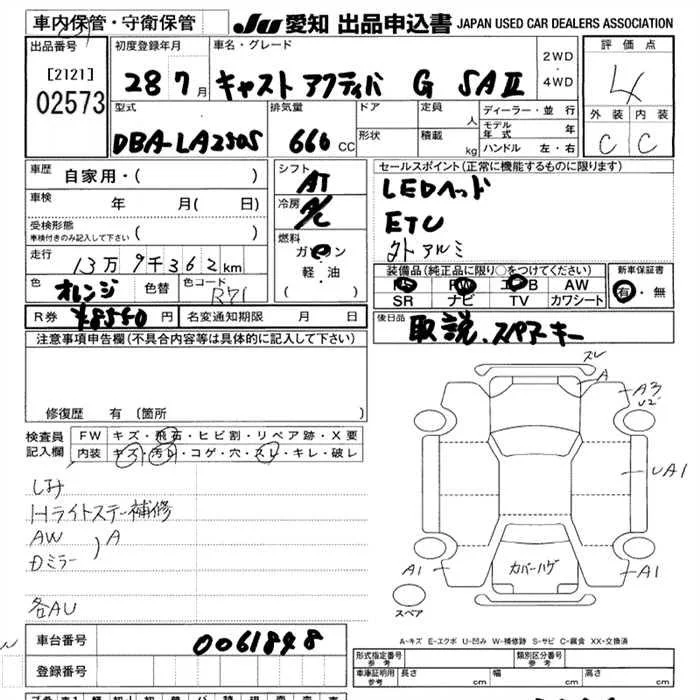 車内保管・守衛保管 JU 愛知 出品申込書 JAPAN USED CAR DEALERS ASSOCIATION
出品番号 初度登録年月 車名・グレード 2WD・4WD 評価点
[2121] 28 7月 キャスト アクティバ G SAⅡ 4
02573
型式 排気量 ドア 定員 人 ディーラー・並行 外装 内装
DBA-LA250S 660 CC 形状 積載 kg モデル年式 年 C C
ハンドル 左・右
車歴 自家用・( ) シフト AT セールスポイント(正常に機能するものに限ります)
車検 年 月( 日) 冷房 A/C LEDヘッド
受検形態 車検付きのみ記入して下さい ( ) 燃料 ETC
走行 13万9千362km ガソリン 外アルミ
軽・油 装備品(純正品に限り○をつけてください) 新車保証書
色 オレンジ 色替 色コード R71 ( ) PS PW エアB AW 有・無
SR ナビ TV カワシート
R券 ¥8550円 名変通知期限 月 日 後日品 取説、スペアキー
注意事項申告欄(不具合内容等は具体的に記入して下さい)
スレ
A
A3
U2
修復歴 有 〔箇所 〕
検査員 FW キズ・飛石・ヒビ割・リペア跡・X要
記入欄 内装 キズ・汚れ・コゲ・穴・スレ・キレ・破レ
UA1
シミ
Hライトステー補修
AW
Dミラー ) A
カバーハゲ
A1 A1
各AU
スペア
A-キズ E-エクボ U-凹み W-補修跡 S-サビ C-腐食 XX-交換済
車台番号 0061848
登録番号
形式指定番号 参考 類別区分番号 参考
車庫証明用 参考 長さ cm 幅 cm 高さ cm